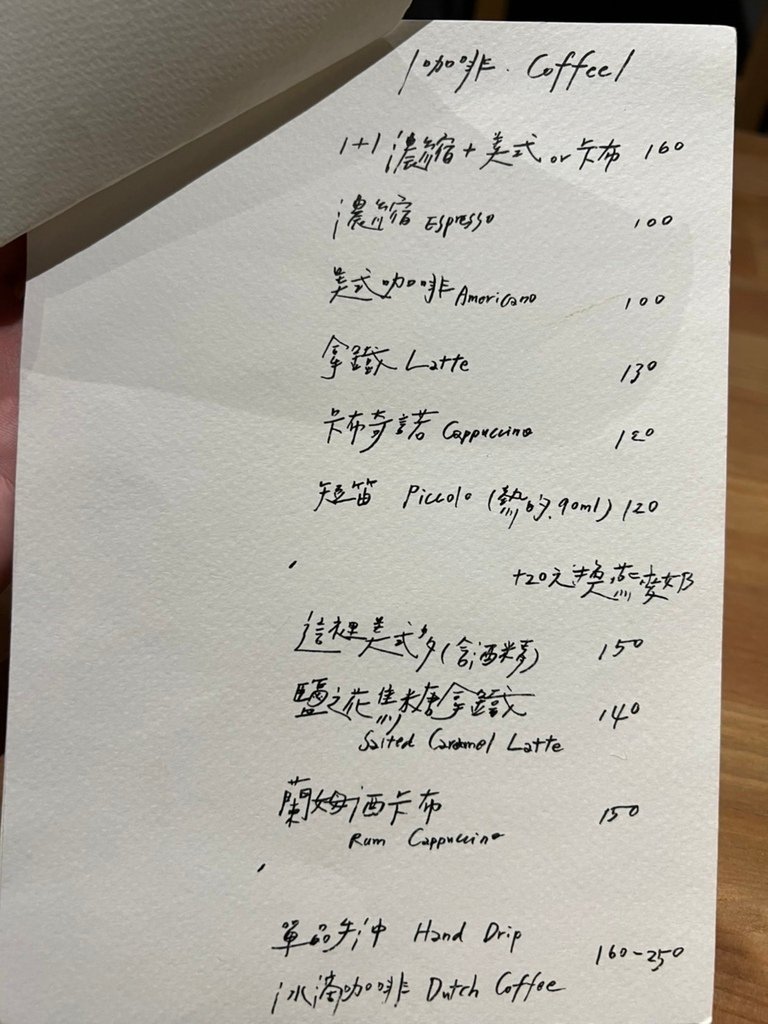 咖啡. Coffee
1+1 濃縮+美式 or 卡布 160
濃縮 Espresso 100
美式咖啡 Americano 100
拿鐵 Latte 130
卡布奇諾 Cappuccino
短笛 Piccolo (熱的.90ml) 120
+20元換燕麥奶
這裡美式多(含酒精) 150
鹽之花焦糖拿鐵 140
Salted Caramel Latte
蘭姆酒卡布 150
Rum Cappuccino
單品手沖 Hand Drip
160-250
冰滴咖啡 Dutch Coffee